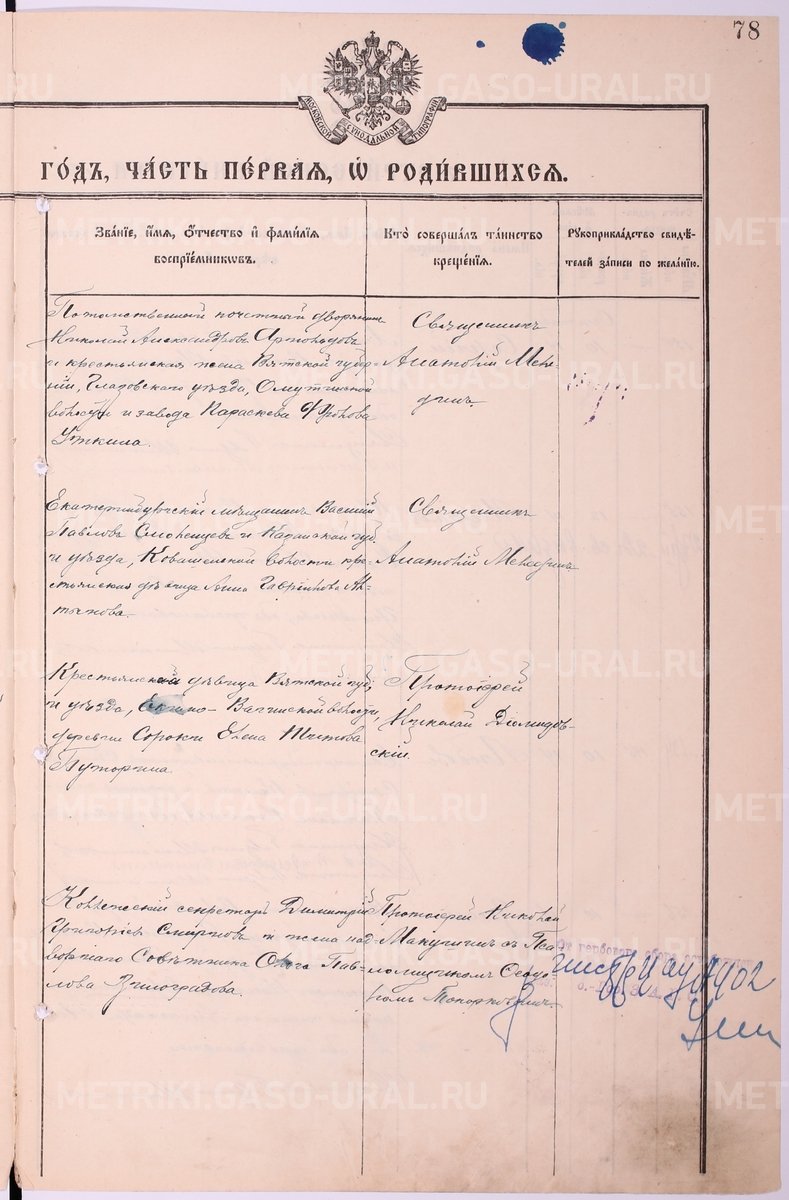 78
МОСКОВСКОЙ СѴНОДАЛЬНОЙ ТИПОГРАФІИ
ГО́ДЪ, ЧА́СТЬ ПЕ́РВАЯ, Ѡ҆ РОДИ́ВШИХСЯ.
Зва́нїе, и҆́мя, ѻ҆́тчество и҆ фами́лїя
воспрїе́мникѡвъ.
Кто̀ соверша́лъ та́инство
креще́нїя.
Рꙋкоприкла́дство свидѣ́-
телей за́писи по жела́нїю.
Потомственный почетный дворянинъ
Николай Александровъ
и крестьянская жена Вятской губер-
ніи, Глазовскаго уѣзда, Омутнинской
волости и завода
Уткина.
Священникъ
Анатолій Мен-
дринъ.
Екатеринбургскій мѣщанинъ Василій
Павловъ и Казанской губ.
и уѣзда, волости кре-
стьянская дѣвица Анна Гавріилова
Священникъ
Анатолій Мендринъ
Крестьянская дѣвица Вятской губ.
и уѣзда, волости,
деревни Сороки Елена Титова
Путоргина.
Протоіерей
Николай Діомидов-
скій.
Коллежскій секретарь Димитрій
Григоріевъ Смирновъ и жена над-
ворнаго Совѣтника Ольга Пав-
лова Виноградова.
Протоіерей Николай
съ
Ѳеодо-
ромъ Топорковымъ.
1902
METRIKI.GASO-URAL.RU